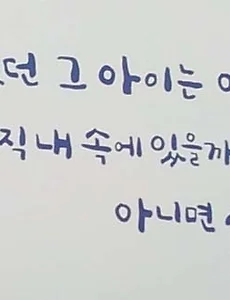 던 그 아이는
직 내 속에 있을까
아니면